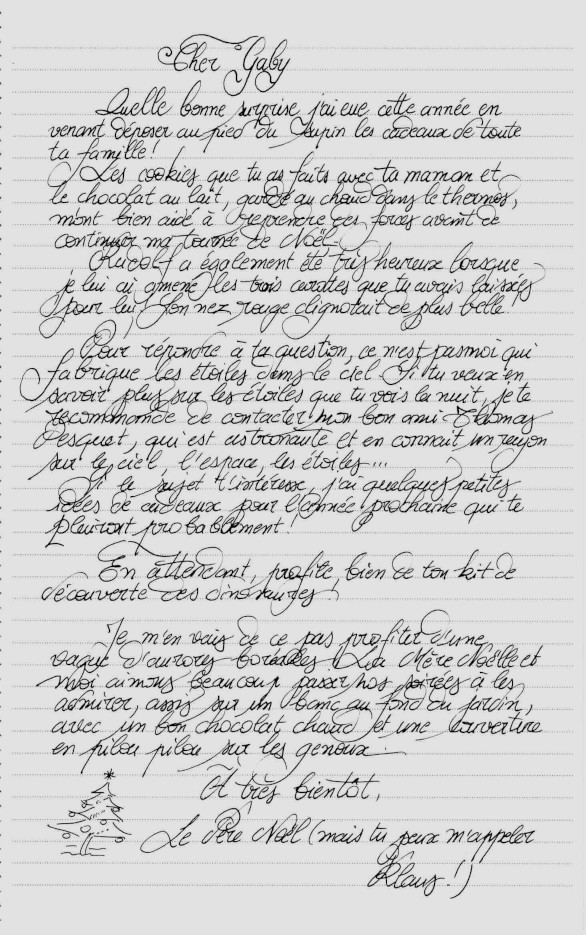 Cher Gaby
Quelle bonne surprise j'ai eue cette année en
venant déposer au pied du sapin les cadeaux de toute
ta famille !
Les cookies que tu as faits avec ta maman et
le chocolat au lait, gardé au chaud dans le thermos,
m'ont bien aidé à reprendre des forces avant de
continuer ma tournée de Noël.
Rudolf a également été très heureux lorsque
je lui ai amené les trois carottes que tu avais laissées
pour lui. Son nez rouge clignotait de plus belle.
Pour répondre à ta question, ce n'est pas moi qui
fabrique les étoiles dans le ciel. Si tu veux en
savoir plus sur les étoiles que tu vois la nuit, je te
recommande de contacter mon bon ami Thomas
Pesquet, qui est astronaute et en connaît un rayon
sur le ciel, l'espace, les étoiles...
Si le sujet t'intéresse, j'ai quelques petites
idées de cadeaux pour l'année prochaine qui te
plairont probablement !
En attendant, profite bien de ton kit de
découverte des dinosaures !
Je m'en vais de ce pas profiter d'une
vague d'aurores boréales. La Mère Noëlle et
moi aimons beaucoup passer nos soirées à les
admirer, assis sur un banc au fond du jardin,
avec un bon chocolat chaud et une couverture
en pilou pilou sur les genoux.
À très bientôt,
Le Père Noël (mais tu peux m'appeler
Klaus !)